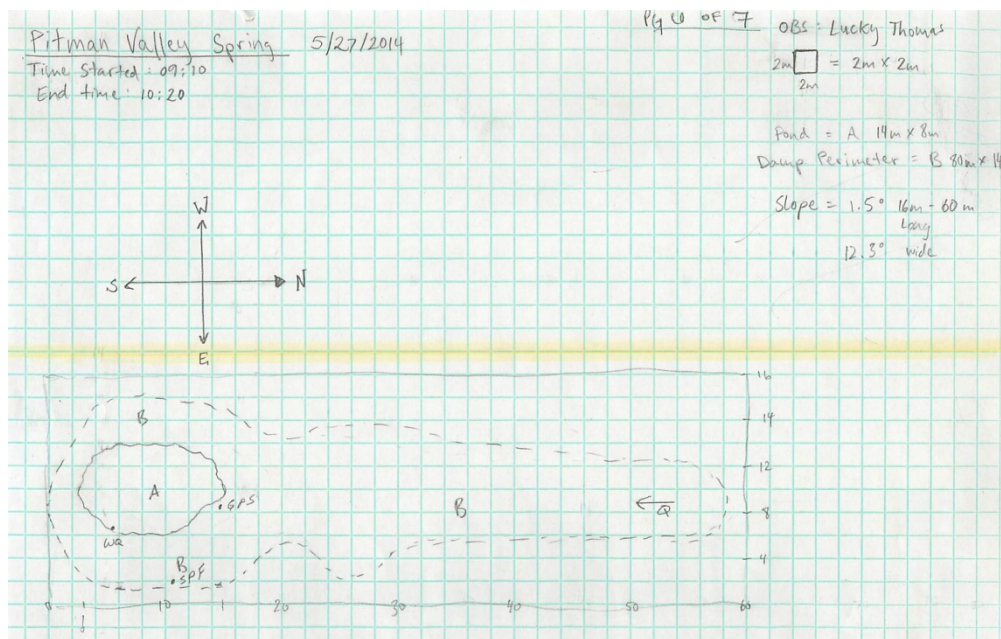 Pitman Valley Spring 5/27/2014
Time Started: 09:10
End time: 10:20
OF 7
OBS: Lucky Thomas
2m = 2m x 2m
2m
Pond = A 14m x 8m
Damp Perimeter = B 80m x 14
Slope = 1.5° 16m - 60m
Long
12.3° wide
W
S N
E
16
14
12
8
4
B
A
GPS
WQ
B
SPF
B
Q
0 10 20 30 40 50 60